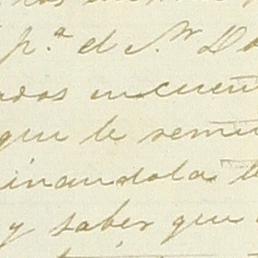 p.ª el Sr Do
ados encuen
que le remi
inandola le
y saber que